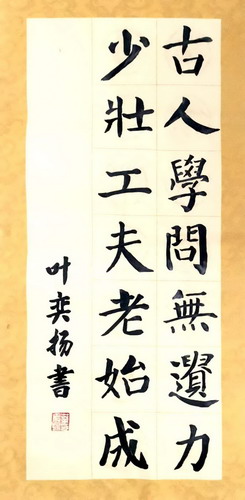 古人學問無遺力
少壯工夫老始成
叶奕扬書